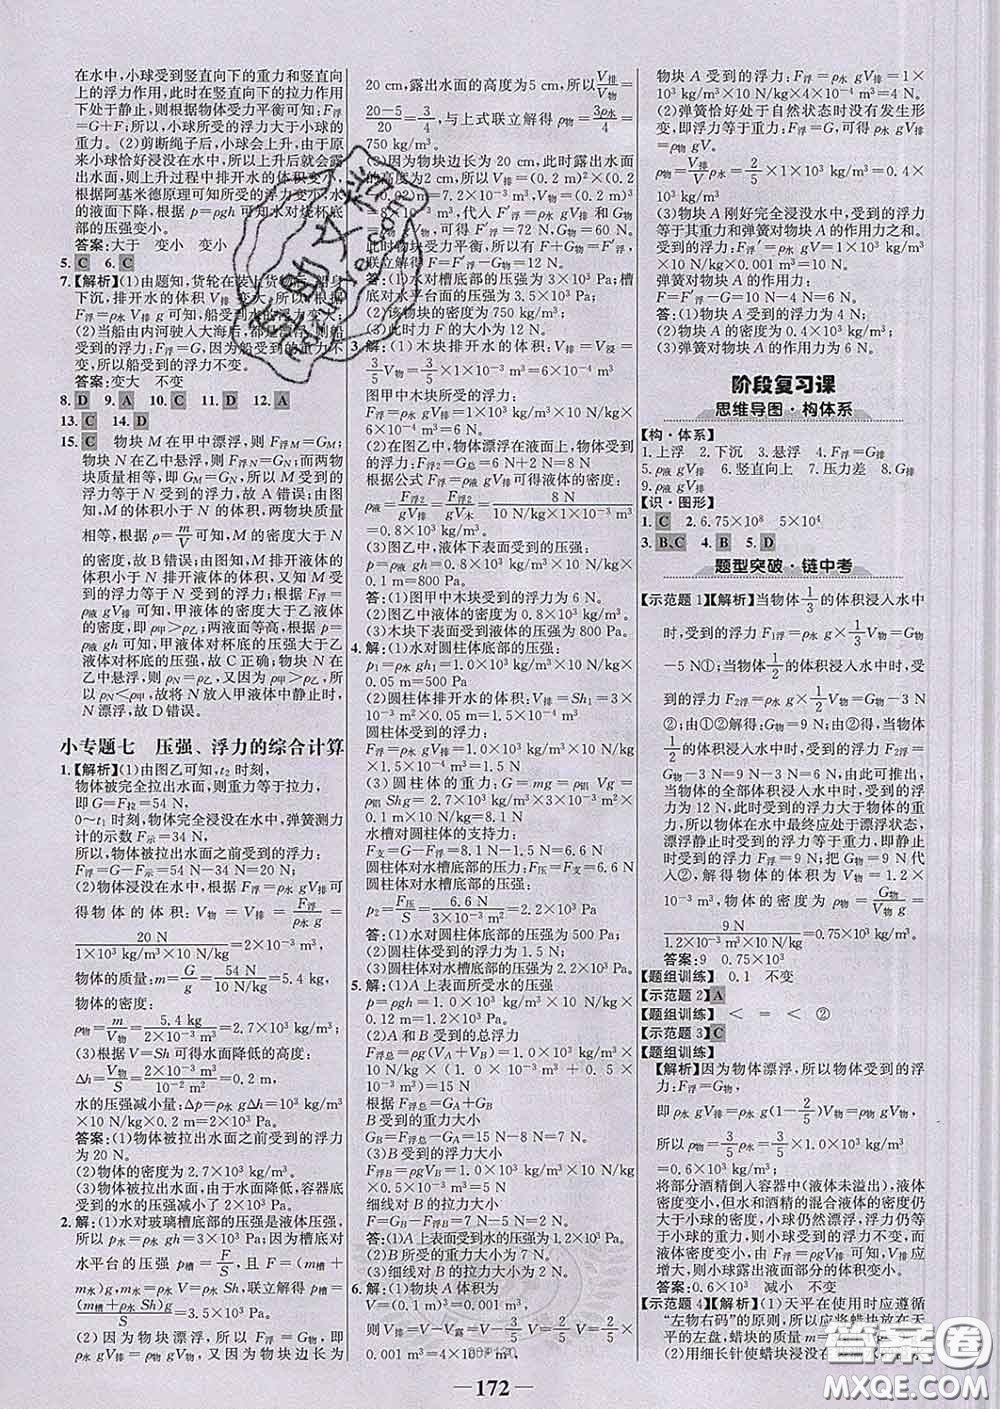 在水中,小球受到竖直向下的重力和竖直向上
的浮力作用,此时在竖直向下的拉力作用
下处于静止,则根据物体受力平衡可知:F浮
=G+F;所以,小球所受的浮力大于小球的
重力。(2)剪断绳子后,小球会上升,由于
原来小球恰好浸没在水中,所以上升后就会露
出水面,则上升过程中排开水的体积变小,
根据阿基米德原理可知所受的浮力变小,水
的液面下降,根据p=ρgh可知水对烧杯底
部的压强变小。
答案:大于 变小 变小
5. C 6. C
下沉,排开水的体积V排变大,所以根据
(2)当船由内河驶入大海后,都是漂浮,则船
受到的F浮=G,因为船受到的重力不
变,所以船受到的浮力不变。
答案:变大 不变
8. D 9. A 10. C 11. D 12. A
13. C 14. D
15. C 物块M在甲中漂浮,则F浮M=GM;
物块N在乙中悬浮,则F浮N=GN;而两物
块质量相等,即GM=GN,所以M受到的
浮力等于N受到的浮力,故A错误;由图
知,M的体积小于N的体积,两物块质量
相等,根据ρ=m/V可知,M的密度大于N的
密度,故B错误;由图知,M排开液体的
体积小于N排开液体的体积,又知M受到
的浮力等于N受到的浮力;根据F浮=
ρ液gV排可知,甲液体的密度大于乙液体
的密度,即ρ甲>ρ乙;根据液面相平和p=
ρ液gh可知,甲液体对杯底的压强大于乙
液体对杯底的压强,故C正确;物块N在
乙中悬浮,则ρN=ρ乙,又因为ρ乙<ρ甲,所
以ρN<ρ甲,故将N放入甲液体中静止时,
N漂浮,故D错误。
小专题七 压强、浮力的综合计算
1.【解析】(1)由图乙可知,t2时刻,
物体被完全拉出水面,则重力等于拉力,
即G=F拉=54 N,
0~t1时刻,物体完全浸没在水中,弹簧测力
计的示数F示=34 N,
所以,物体被拉出水面之前受到的浮力:
F浮=G-F示=54 N-34 N=20 N
(2)物体浸没在水中,根据F浮=ρ水gV排
可得物体的体积:V物=V排=F浮/ρ水g=
20 N/(1×10³ kg/m³×10 N/kg)=2×10⁻³ m³
物体的质量:m=G/g=54 N/10 N/kg=5.4 kg,
物体的密度:
ρ物=m/V物=5.4 kg/(2×10⁻³ m³)=2.7×10³ kg/m³;
(3)根据V=Sh可得水面降低的高度:
Δh=V物/S=2×10⁻³ m³/10⁻² m²=0.2 m,
水的压强减小量:Δp=ρ水gΔh=10³ kg/m³
×10 N/kg×0.2 m=2×10³ Pa。
答案:(1)物体被拉出水面之前受到的浮力
为20 N。
(2)物体的密度为2.7×10³ kg/m³。
(3)物体被拉出水面,水面降低,容器底
受到的水的压强减小了2×10³ Pa。
2.解:(1)水对玻璃槽底部的压强是液体压强,
所以p水=ρ水gh=3×10³ Pa;因为槽底对
水平台的压强p槽=F/S,且F=(m槽+
m水)g,m水=ρ水V水,V水=Sh,联立解得p槽=
(m槽+ρ水Sh)g/S=3.5×10³ Pa;
(2)因为物块漂浮,所以F浮=G物,即
ρ水gV排=ρ物gV物,因为物块为
20 cm,露出水面的高度为5 cm,所以V排/V物=
(20-5)/20=3/4,与上式联立解得ρ物=3ρ水/4=
750 kg/m³;
(3)因为物块边长为20 cm,此时露出水面
的高度为2 cm,所以V排=(0.2 m)²×(0.2
m)=7.2×10⁻³ m³,V物=(0.2 m)³=
m³,代入F′浮=ρ水gV排和G物=
得F′浮=72 N,G物=60 N。
此时物块受力平衡,所以有F+G物=F′浮,
联立解得F=12 N。
答:(1)水对槽底部的压强为3×10³ Pa;槽
底对水平台面的压强为3.5×10³ Pa。
(2)该物块的密度为750 kg/m³;
(3)此时力F的大小为12 N。
3.解:(1)木块排开水的体积:V排=V浸=
3/5V物=3/5×1×10⁻³ m³=0.6×10⁻³ m³
图甲中木块所受的浮力:
F浮=ρ水gV排=1×10³ kg/m³×10 N/kg×
0.6×10⁻³ m³=6 N
(2)在图乙中,物体漂浮在液面上,所以
F浮2=G总=6 N+2 N=8 N
根据公式F浮=ρ液gV排可得液体的密度:
ρ液=F浮2/gV排=F浮2/gV木=8 N/(10 N/kg×1×10⁻³ m³)
=0.8×10³ kg/m³
(3)图乙中,液体下表面受到的压强:
p=ρ液gh=0.8×10³ kg/m³×10 N/kg
×0.1 m=800 Pa。
答:(1)图甲中木块受到的浮力为6 N。
(2)图乙中液体的密度为0.8×10³ kg/m³。
(3)木块下表面受到液体的压强为800 Pa。
4.解:(1)水对圆柱体底部的压强:
p1=ρ水gh1=1.0×10³ kg/m³×10 N/kg
×0.05 m=500 Pa
(2)圆柱体排开水的体积:V排=Sh1=3×
10⁻³ m²×0.05 m=1.5×10⁻⁴ m³
圆柱体受到的浮力:
F浮=ρ水gV排=1.0×10³ kg/m³×10 N/kg
×1.5×10⁻⁴ m³=1.5 N
(3)圆柱体的重力:G=mg=ρ铝Vg=
ρ铝Shg=2.7×10³ kg/m³×3×10⁻³ m²
×0.1 m×10 N/kg=8.1 N
水槽对圆柱体的支持力:
F支=G-F浮=8.1 N-1.5 N=6.6 N
圆柱体对水槽底部的压力:F压=F支=6.6 N
圆柱体对水槽底部的压强:
p2=F压/S=6.6 N/(3×10⁻³ m²)=2.2×10³ Pa
答:(1)水对圆柱体底部的压强为500 Pa;
(2)圆柱体受到的浮力为1.5 N;
(3)圆柱体对水槽底部的压强为2.2×10³ Pa。
5.解:(1)A上表面所受水的压强
p=ρgh=1.0×10³ kg/m³×10 N/kg×
0.12 m=1.2×10³ Pa。
(2)A和B受到的总浮力
F浮总=ρ水g(VA+VB)=1.0×10³ kg/m³
×10 N/kg×(1.0×10⁻³ m³+0.5×10⁻³ m³)
=15 N
根据F浮总=GA+GB
B受到的重力大小
GB=F浮总-GA=15 N-8 N=7 N。
(3)B受到的浮力大小
F浮B=ρ水gVB=1.0×10³ kg/m³×10 N/kg
×0.5×10⁻³ m³=5 N
细线对B的拉力大小
F=GB-F浮B=7 N-5 N=2 N。
答:(1)A上表面受到的压强为1.2×10³ Pa。
(2)B所受的重力大小为7 N。
(3)细线对B的拉力大小为2 N。
6.解:(1)物块A体积为
V=(0.1 m)³=0.001 m³,
则V排=V-V露=V-2/5V=3/5V=3/5×
0.001 m³=4×10⁻⁴ m³,
物块A受到的浮力:F浮=ρ水gV排=1×
10³ kg/m³×10 N/kg×4×10⁻⁴ m³=4 N。
(2)弹簧恰好处于自然状态时没有发生形
变,即浮力等于重力:F浮=G,ρ水gV排=
ρgV。
ρ=V排/Vρ水=
0.4×10³ kg/m³
(3)物块A刚好完全浸没水中,受到的浮力
等于其重力和弹簧对物块A的作用力之和。
弹簧对物块A的作用力:
F=F浮-G=ρ水gV-ρgV=1×10³ kg/m³
×10 N/kg×0.001 m³-0.4×10³ kg/m³×
10 N/kg×0.001 m³=10 N-4 N=6 N。
答:(1)物块A受到的浮力为4 N。
(2)物块A的密度为0.4×10³ kg/m³;
(3)弹簧对物块A的作用力为6 N。
阶段复习课
思维导图·构体系
【构·体系】
1.上浮 2.下沉 3.悬浮 4.漂浮
5.ρ液gV排 6.竖直向上 7.压力差 8.G排
9.ρ液gV排
【识·图形】
1. C 2. 6.75×10⁸ 5×10⁴
3. B、C 4. B 5. D
题型突破·链中考
【示范题1】【解析】当物体1/3的体积浸入水中
时,受到的浮力F1浮=ρ水g×1/3V物=G物
-5 N①;当物体1/2的体积浸入水中时,受
到的浮力F2浮=ρ水g×1/2V物=G物-3 N
②;由①②解得:G物=9 N;由②得,当物体
1/2的体积浸入水中时,受到的浮力F2浮=
G物-3 N=9 N-3 N=6 N,由此可推出,
当物体的全部体积浸入水中时,受到的浮
力为12 N,此时受到的浮力大于物体的重力,
所以物体在水中最终应处于漂浮状态,
漂浮静止时受到的浮力等于重力,即静止
时受到的浮力F浮=9 N;把G物=9 N代入
②,解得物体的体积为V物=1.2
×10⁻³ m³,则物体的密度:ρ物=G物/V物g=
9 N/(1.2×10⁻³ m³×10 N/kg)=0.75×10³ kg/m³。
答案:9 0.75×10³
【题组训练】 0.1 不变
【示范题2】A
【题组训练】 < = < ②
【示范题3】C
【题组训练】
【解析】因为物体漂浮,所以受到的浮
力:F浮=G物,
即ρ水gV排=ρ水g(1-2/5)V物=ρ物gV物
所以ρ物=3/5ρ水=3/5×1.0×10³ kg/m³
=0.6×10³ kg/m³;
将部分酒精倒入容器中(液体未溢出),液体
密度变小,但水和酒精的混合液体的密度仍
大于小球的密度,小球仍然漂浮,浮力仍等
于小球的重力,则小球受到的浮力不变,而
液体密度变小,由F浮=ρgV排可知,V排应
增大,则小球露出液面部分的体积变小。
答案:0.6×10³ 减小 不变
【示范题4】【解析】(1)天平在使用时应遵循
“左物右码”的原则,所以应将蜡块放在天
平的左盘,蜡块的质量为
(2)用细长针使蜡块浸没在水中,
— 172 —
答案圈
MXQE.COM